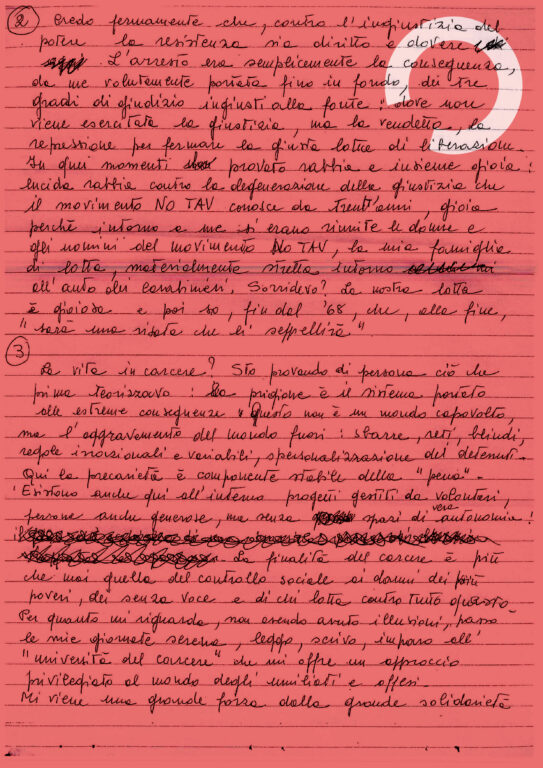 ② Credo fermamente che, contro l'ingiustizia del
potere la resistenza sia diritto e dovere
L'arresto era semplicemente la conseguenza,
da me volutamente portata fino in fondo, dei tre
gradi di giudizio ingiusti alla fonte: dove non
viene esercitata la giustizia, ma la vendetta, la
repressione per fermare la giusta lotta di liberazione.
In quei momenti ho provato rabbia e insieme gioia:
lucida rabbia contro la degenerazione della giustizia che
il movimento NO TAV conosce da trent'anni, gioia
perché intorno a me si erano riunite le donne e
gli uomini del movimento NO TAV, la mia famiglia
di lotta, materialmente stretta intorno
all'auto dei carabinieri. Sorridevo? La nostra lotta
è gioiosa e poi so, fin dal '68, che, alla fine,
"sarà una risata che li seppellirà"
③
La vita in carcere? Sto provando di persona ciò che
prima teorizzavo: la prigione è il sistema portato
alle estreme conseguenze. Questo non è un mondo capovolto,
ma l'aggravamento del mondo fuori: sbarre, reti, blindi,
regole irrazionali e variabili, spersonalizzazione dei detenuti.
Qui la precarietà è componente stabile della "pena".
Esistono anche qui all'interno progetti gestiti da volontari,
persone anche generose, ma senza spazi di vera autonomia!
La finalità del carcere è più
che mai quella del controllo sociale ai danni dei più
poveri, dei senza voce e di chi lotta contro tutto questo.
Per quanto mi riguarda, non avendo avuto illusioni, passo
le mie giornate serena, leggo, scrivo, imparo all'
"università del carcere" che mi offre un approccio
privilegiato al mondo degli umiliati e offesi.
Mi viene una grande forza dalla grande solidarietà